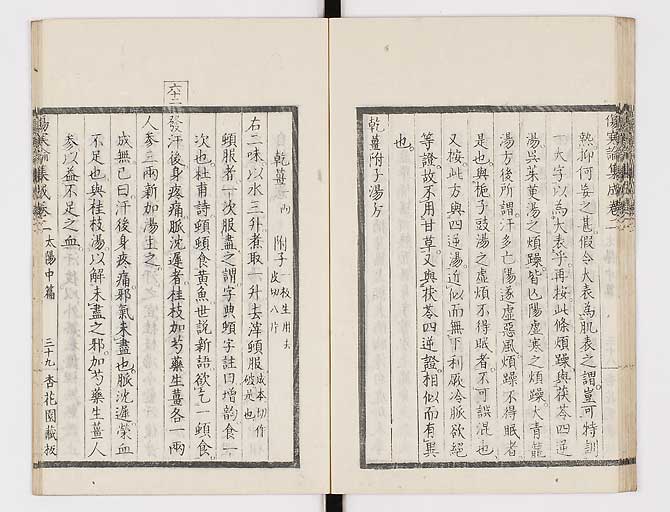 傷寒論集成卷二
熱抑何妄之甚假令大表為肌表之謂豈可特訓
一大字以為大表乎再按此條煩躁與茯苓四逆
湯吳茱萸湯之煩躁皆亡陽虛寒之煩躁大青龍
湯方後所謂汗多亡陽遂虛惡風煩躁不得眠者
是也與梔子豉湯之虛煩不得眠者不可誤混也
又按此方與四逆湯近似而無下利厥冷脈欲絕
等證故不用甘草又與茯苓四逆證相似而有異
也
乾薑附子湯方
乾薑一兩 附子一枚生用去皮切八片
右二味以水三升煮取一升去滓頓服成本切作破是也
頓服者一次服盡之謂字典頓字註曰增韵食一
次也杜甫詩頓頓食黃魚世說新語欲乞一頓食
六十二
發汗後身疼痛脈沈遲者桂枝加芍藥生薑各一兩
人參三兩新加湯主之
成無已曰汗後身疼痛邪氣未盡也脈沈遲榮血
不足也與桂枝湯以解未盡之邪加芍藥生薑人
參以益不足之血
傷寒論集成卷二 太陽中篇 三十九 杏花園藏板